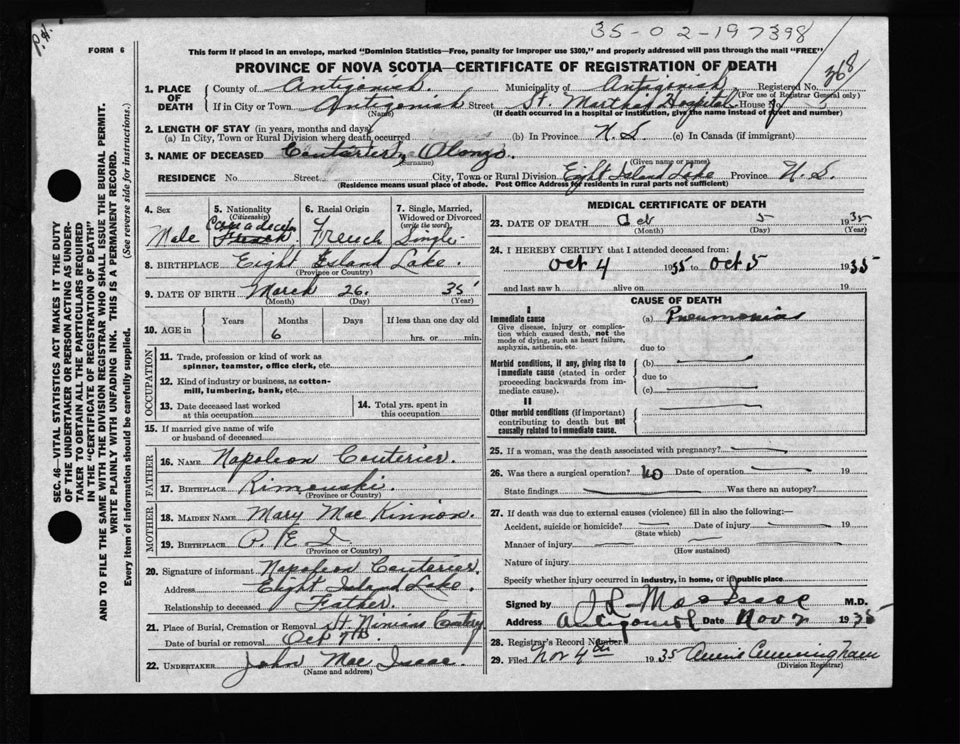 P.H.
35-02-197398
FORM 6
This form if placed in an envelope, marked "Dominion Statistics—Free, penalty for improper use $300," and properly addressed will pass through the mail "FREE"
PROVINCE OF NOVA SCOTIA—CERTIFICATE OF REGISTRATION OF DEATH
368
1. PLACE OF DEATH
County of Antigonish Municipality of Antigonish Registered No.
(For use of Registrar General only)
If in City or Town Antigonish Street St. Martha's Hospital House No.
(Name) (If death occurred in a hospital or institution, give the name instead of street and number)
2. LENGTH OF STAY (in years, months and days)
(a) In City, Town or Rural Division where death occurred (b) In Province N.S. (c) In Canada (if immigrant)
3. NAME OF DECEASED Couturier, Alonzo.
(Surname) (Given name or names)
RESIDENCE No Street City, Town or Rural Division Eight Island Lake Province N.S.
(Residence means usual place of abode. Post Office Address for residents in rural parts not sufficient)
4. Sex
Male
5. Nationality
(Citizenship)
Canadian
French
6. Racial Origin
French
7. Single, Married,
Widowed or Divorced
(write the word)
Single.
8. BIRTHPLACE Eight Island Lake.
(Province or Country)
9. DATE OF BIRTH March 26. 35
(Month) (Day) (Year)
10. AGE in Years Months Days If less than one day old
6 hrs. or min.
OCCUPATION
11. Trade, profession or kind of work as
spinner, teamster, office clerk, etc.
12. Kind of industry or business, as cotton-
mill, lumbering, bank, etc.
13. Date deceased last worked
at this occupation
14. Total yrs. spent in
this occupation
15. If married give name of wife
or husband of deceased
FATHER
16. NAME Napoleon Couterier.
17. BIRTHPLACE Rimouski.
(Province or Country)
MOTHER
18. MAIDEN NAME Mary Mac Kinnon.
19. BIRTHPLACE P.E.I.
(Province or Country)
20. Signature of informant Napoleon Couterier.
Address Eight Island Lake.
Relationship to deceased Father.
21. Place of Burial, Cremation or Removal St. Ninians Cemetery
Date of burial or removal Oct 7th
22. UNDERTAKER John Mac Isaac.
(Name and address)
MEDICAL CERTIFICATE OF DEATH
23. DATE OF DEATH Oct 5 1935
(Month) (Day) (Year)
24. I HEREBY CERTIFY that I attended deceased from:
Oct 4 1935 to Oct 5 1935
and last saw h alive on 19
CAUSE OF DEATH
I
Immediate cause
Give disease, injury or complica-
tion which caused death, not the
mode of dying, such as heart failure,
asphyxia, asthenia, etc.
(a) Pneumonia
due to
Morbid conditions, if any, giving rise to
immediate cause (stated in order
proceeding backwards from im-
mediate cause).
(b)
due to
(c)
II
Other morbid conditions (if important)
contributing to death but not
causally related to immediate cause.
25. If a woman, was the death associated with pregnancy?
26. Was there a surgical operation? No Date of operation 19
State findings Was there an autopsy?
27. If death was due to external causes (violence) fill in also the following:—
Accident, suicide or homicide? Date of injury 19
(State which)
Manner of injury
(How sustained)
Nature of injury
Specify whether injury occurred in industry, in home, or in public place
Signed by J L MacIsaac M.D.
Address Antigonish Date Nov 2 1935
28. Registrar's Record Number
29. Filed Nov 4th 1935 Annie Cunningham
(Division Registrar)
SEC. 46—VITAL STATISTICS ACT MAKES IT THE DUTY
OF THE UNDERTAKER OR PERSON ACTING AS UNDER-
TAKER TO OBTAIN ALL THE PARTICULARS REQUIRED
IN THE "CERTIFICATE OF REGISTRATION OF DEATH"
AND TO FILE THE SAME WITH THE DIVISION REGISTRAR WHO SHALL ISSUE THE BURIAL PERMIT.
WRITE PLAINLY WITH UNFADING INK. THIS IS A PERMANENT RECORD.
Every item of information should be carefully supplied. (See reverse side for instructions.)